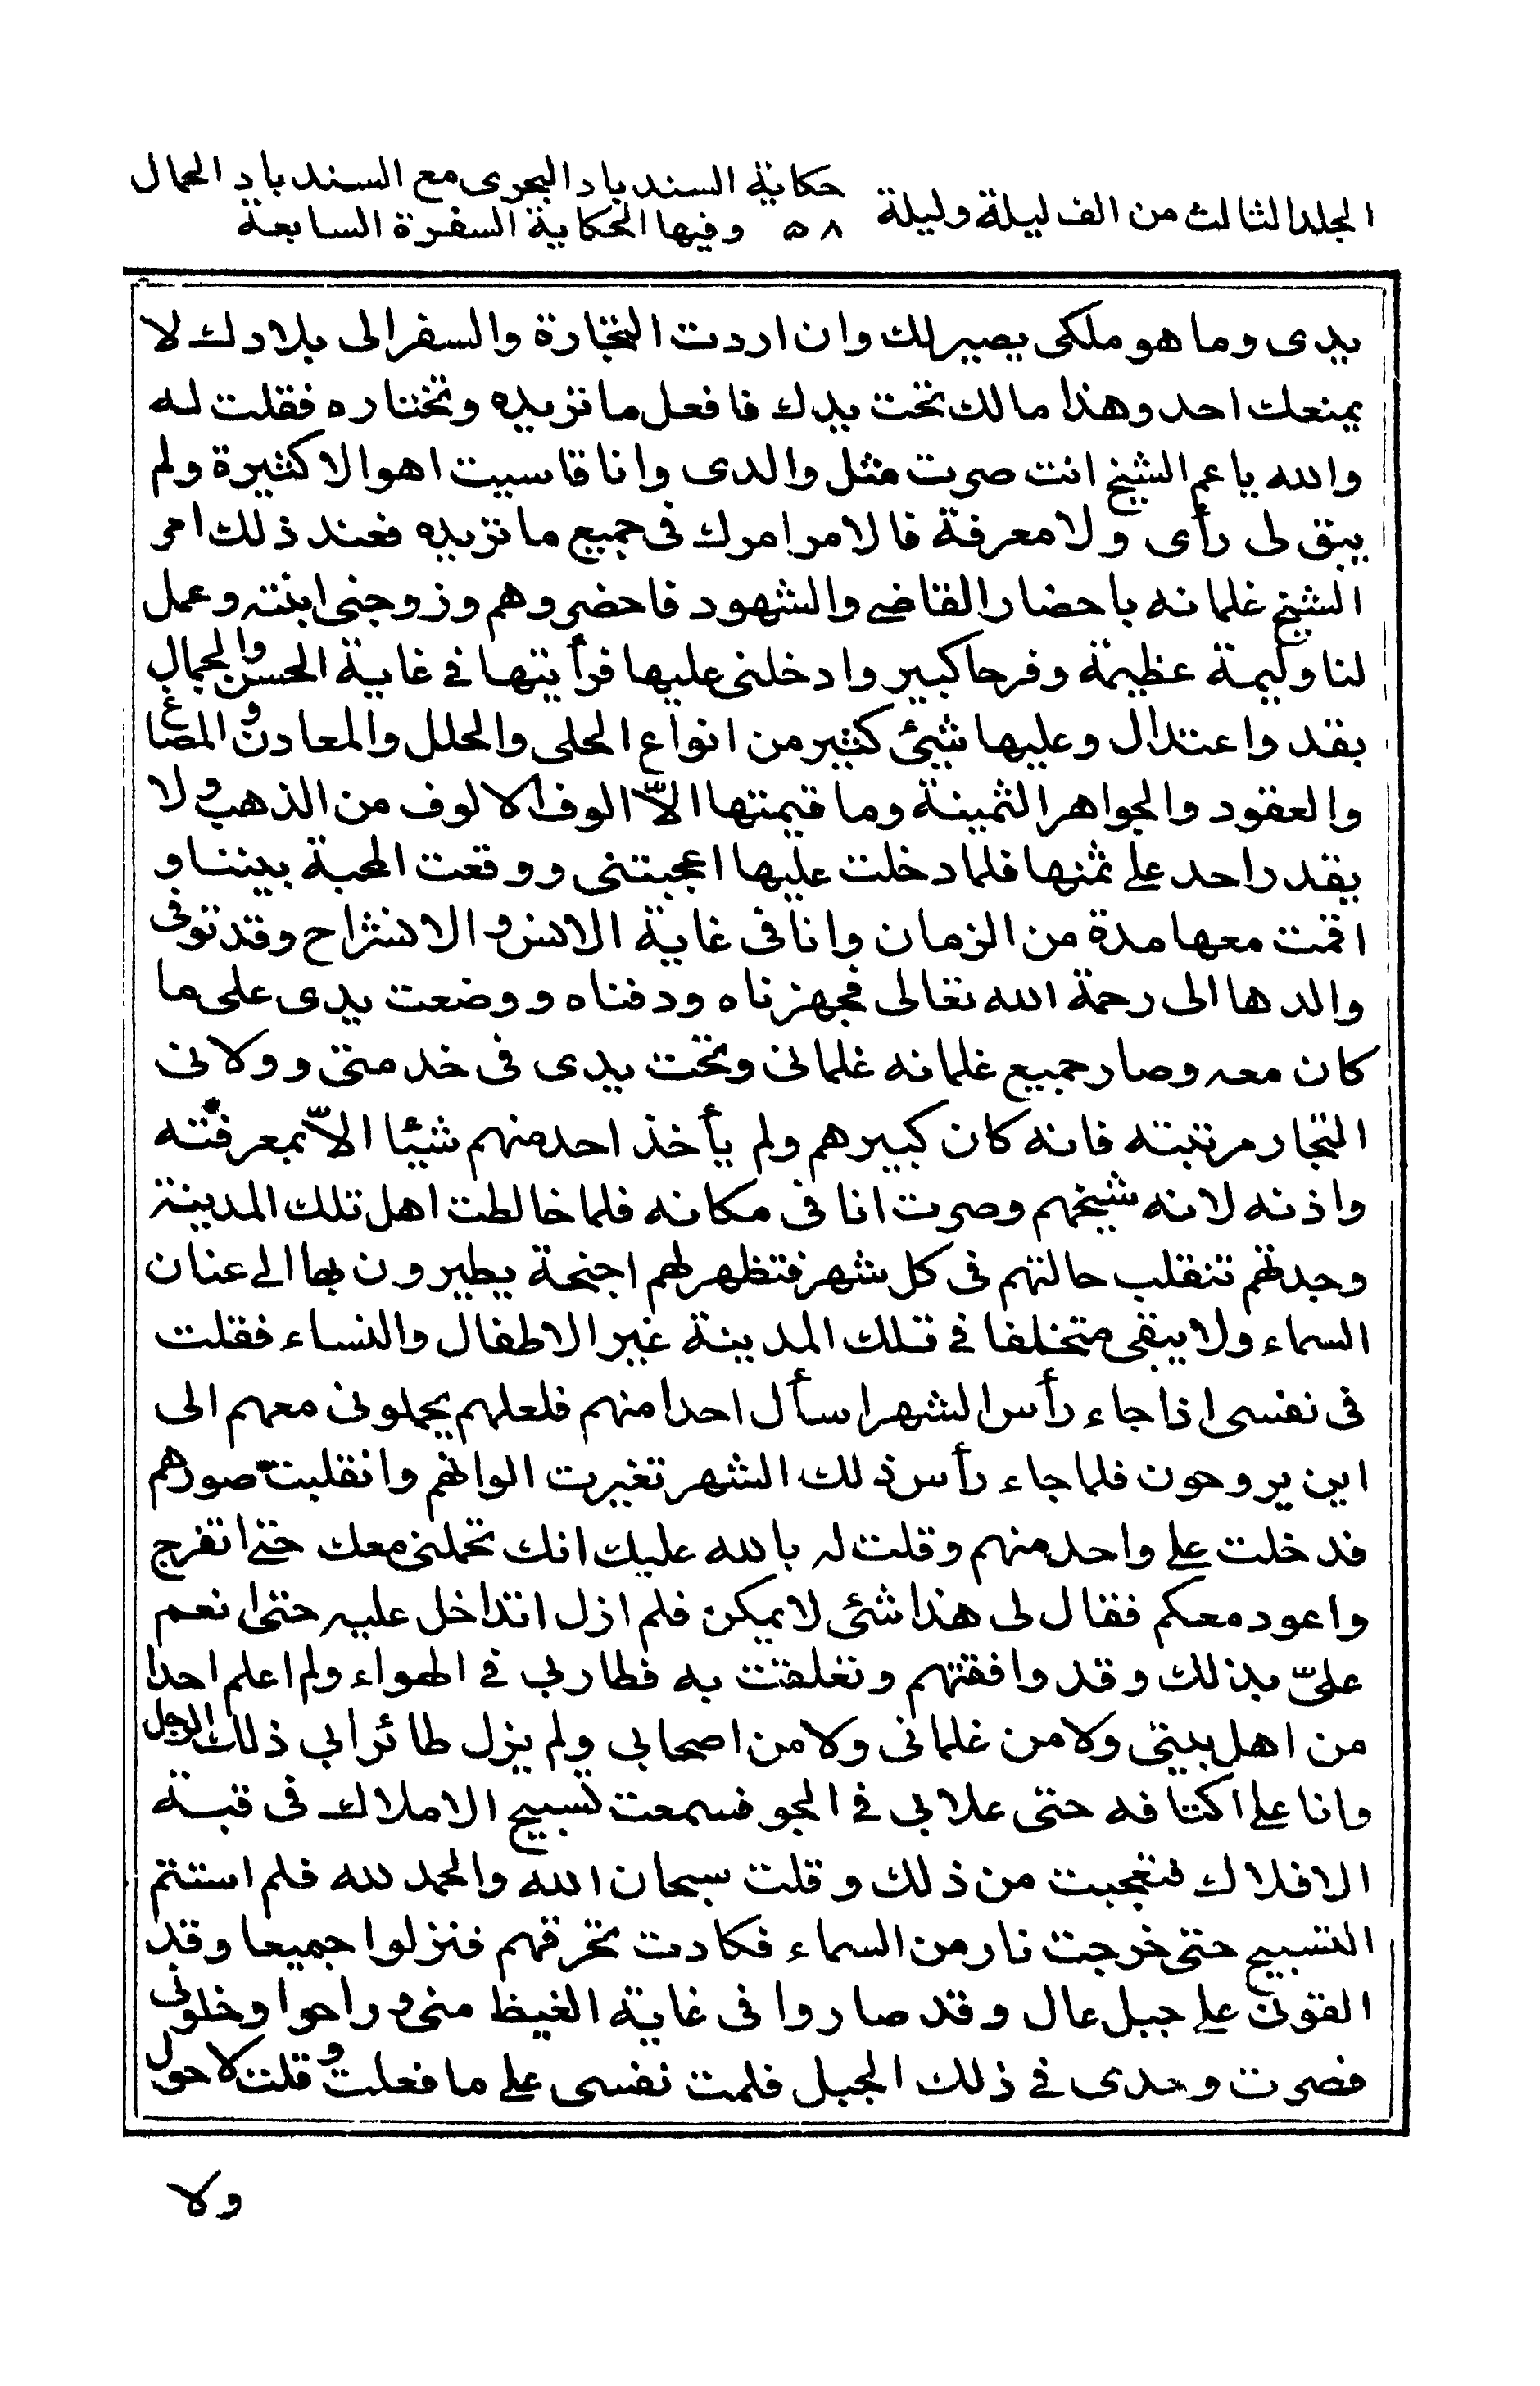 المجلد الثالث من الف ليلة وليلة
حكاية السندباد البحرى مع السندباد الحمال
٥٨ وفيها الحكاية السفرة السابعة
يدى وما هو ملكى يصير لك وان اردت التجارة والسفر الى بلادك لا
يمنعك احد وهذا مالك تحت يدك فافعل ما تريده وتختاره فقلت له
والله يا عم الشيخ انت صرت مثل والدى وانا قاسيت اهوالا كثيرة ولم
يبق لى رأى ولا معرفة فالامر امرك فى جميع ما تريده فعند ذلك امر
الشيخ غلمانه باحضار القاضے والشهود فاحضروهم وزوجنى ابنته وعمل
لنا وليمة عظيمة وفرحا كبير وادخلنى عليها فرأيتها فے غاية الحسن والجمال
بقد واعتدال وعليها شيئ كثير من انواع الحلى والحلل والمعادن والمصاغ
والعقود والجواهر الثمينة وما قيمتها الاّ الوف الالوف من الذهب ولا
يقدر احد علے ثمنها فلما دخلت عليها اعجبتنى ووقعت المحبة بيننا و
اقمت معها مدة من الزمان وانا فى غاية الانس والانشراح وقد توفى
والدها الى رحمة الله تعالى فجهزناه ودفناه ووضعت يدى على ما
كان معه وصار جميع غلمانه غلمانى وتحت يدى فى خدمتى وولانى
التجار مرتبته فانه كان كبيرهم ولم يأخذ احد منهم شيئا الاّ بمعرفته
واذنه لانه شيخهم وصرت انا فى مكانه فلما خالطت اهل تلك المدينة
وجدتهم تنقلب حالتهم فى كل شهر فتظهر لهم اجنحة يطيرون بها الے عنان
السماء ولا يبقى متخلفا فے تلك المدينة غير الاطفال والنساء فقلت
فى نفسى اذا جاء رأس الشهر اسأل احدا منهم فلعلهم يحملونى معهم الى
اين يروحون فلما جاء رأس ذلك الشهر تغيرت الوانهم وانقلبت صورهم
فدخلت علے واحد منهم وقلت له بالله عليك انك تحملنى معك حتے اتفرج
واعود معكم فقال لى هذا شئى لا يمكن فلم ازل اتداخل عليه حتى انعم
علىّ بذلك وقد وافقتهم وتعلقت به فطار بى فے الهواء ولم اعلم احدا
من اهل بيتى ولا من غلمانى ولا من اصحابى ولم يزل طائرا بى ذلك الرجل
وانا علے اكتافه حتى علا بى فے الجو فسمعت تسبيح الاملاك فى قبة
الافلاك فتعجبت من ذلك وقلت سبحان الله والحمد لله فلم استتم
التسبيح حتى خرجت نار من السماء فكادت تحرقهم فنزلوا جميعا وقد
القونى علے جبل عال وقد صاروا فى غاية الغيظ منى وراحوا وخلونى
فصرت وحدى فے ذلك الجبل فلمت نفسى علے ما فعلت وقلت لا حول
ولا